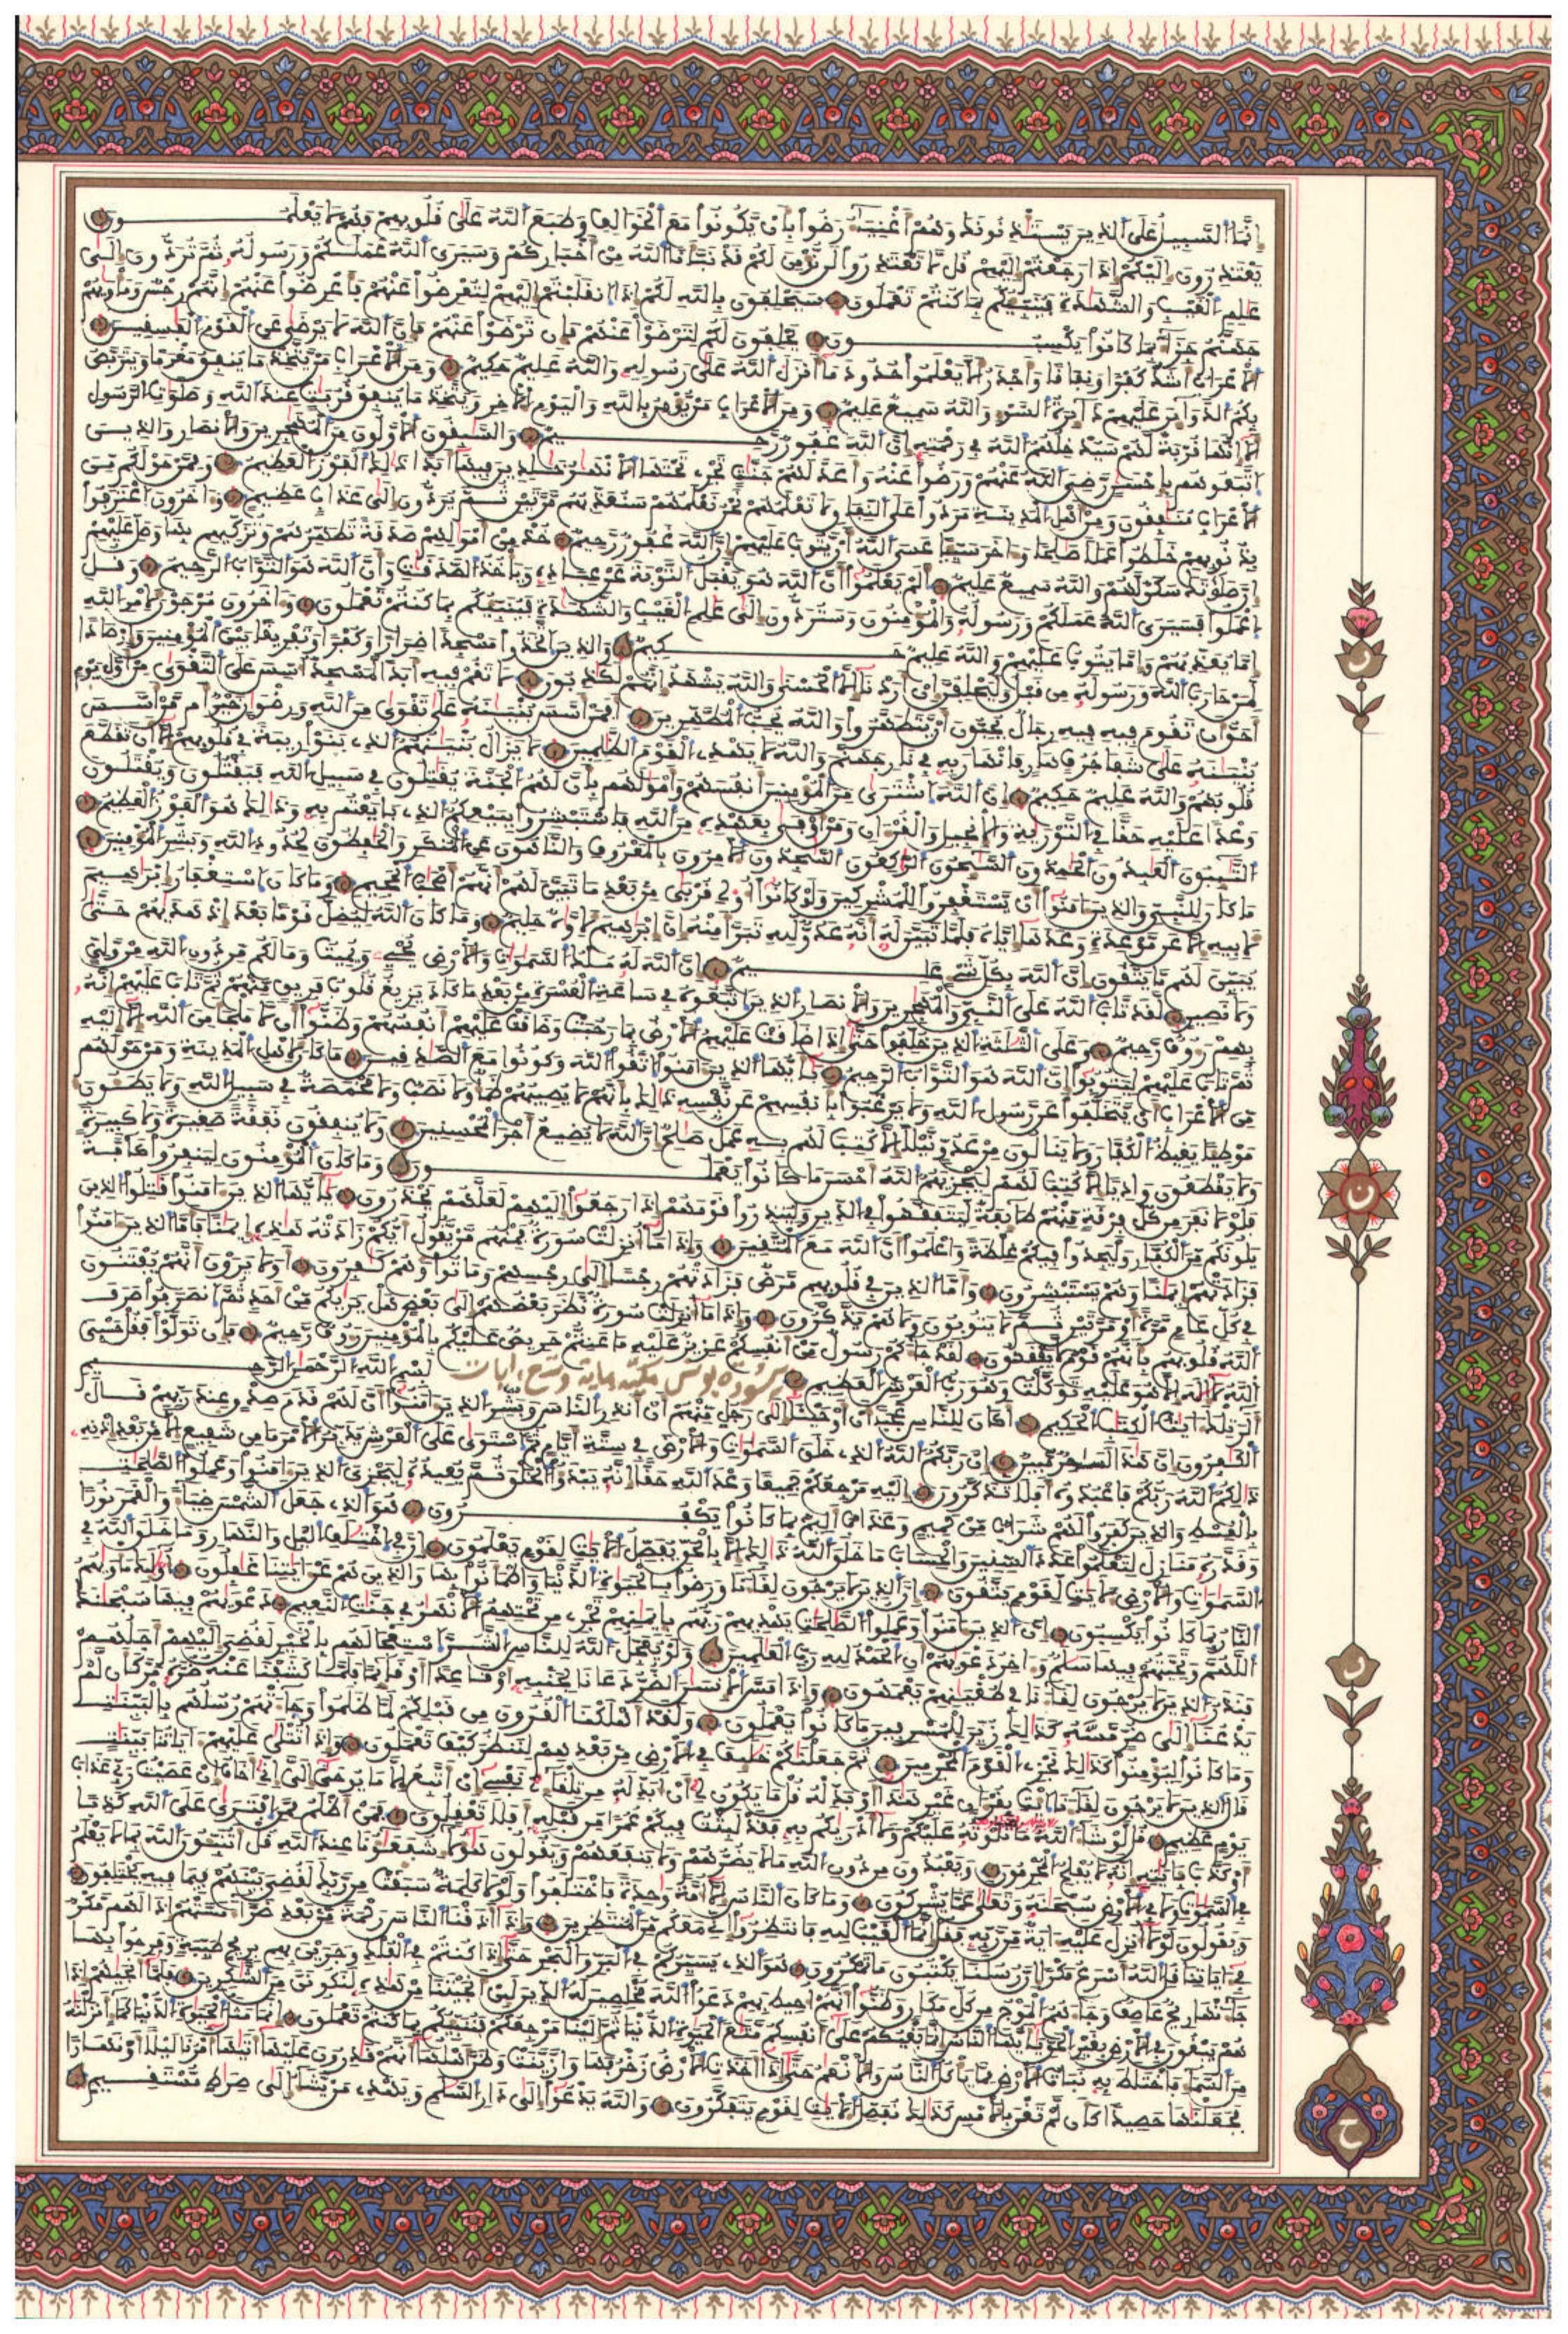 إنما السبيل على الذين يستئذنونك وهم أغنياء رضوا بأن يكونوا مع الخوالف وطبع الله على قلوبهم فهم لا يعلمون
يعتذرون إليكم إذا رجعتم إليهم قل لا تعتذروا لن نؤمن لكم قد نبأنا الله من أخباركم وسيرى الله عملكم ورسوله ثم تردون إلى
علم الغيب والشهدة فينبئكم بما كنتم تعملون سيحلفون بالله لكم إذا انقلبتم إليهم لتعرضوا عنهم فأعرضوا عنهم إنهم رجس ومأويهم
جهنم جزاء بما كانوا يكسبون يحلفون لكم لترضوا عنهم فإن ترضوا عنهم فإن الله لا يرضى عن القوم الفسقين
الأعراب أشد كفرا ونفاقا وأجدر ألا يعلموا حدود ما أنزل الله على رسوله والله عليم حكيم ومن الأعراب من يتخذ ما ينفق مغرما ويتربص
بكم الدوائر عليهم دائرة السوء والله سميع عليم ومن الأعراب من يؤمن بالله واليوم الآخر ويتخذ ما ينفق قربت عند الله وصلوت الرسول
ألا إنها قربة لهم سيدخلهم الله في رحمته إن الله غفور رحيم والسبقون الأولون من المهجرين والأنصار والذين
اتبعوهم بإحسن رضي الله عنهم ورضوا عنه وأعد لهم جنت تجري تحتها الأنهر خلدين فيها أبدا ذلك الفوز العظيم وممن حولكم من
الأعراب منفقون ومن أهل المدينة مردوا على النفاق لا تعلمهم نحن نعلمهم سنعذبهم مرتين ثم يردون إلى عذاب عظيم وآخرون اعترفوا
بذنوبهم خلطوا عملا صلحا وآخر سيئا عسى الله أن يتوب عليهم إن الله غفور رحيم خذ من أمولهم صدقة تطهرهم وتزكيهم بها وصل عليهم
إن صلوتك سكن لهم والله سميع عليم ألم يعلموا أن الله هو يقبل التوبة عن عباده ويأخذ الصدقت وأن الله هو التواب الرحيم وقل
اعملوا فسيرى الله عملكم ورسوله والمؤمنون وستردون إلى علم الغيب والشهدة فينبئكم بما كنتم تعملون وآخرون مرجون لأمر الله
إما يعذبهم وإما يتوب عليهم والله عليم حكيم والذين اتخذوا مسجدا ضرارا وكفرا وتفريقا بين المؤمنين وإرصادا
لمن حارب الله ورسوله من قبل وليحلفن إن أردنا إلا الحسنى والله يشهد إنهم لكذبون لا تقم فيه أبدا لمسجد أسس على التقوى من أول يوم
أحق أن تقوم فيه فيه رجال يحبون أن يتطهروا والله يحب المطهرين أفمن أسس بنينه على تقوى من الله ورضون خير أم من أسس
بنينه على شفا جرف هار فانهار به في نار جهنم والله لا يهدي القوم الظلمين لا يزال بنينهم الذي بنوا ريبة في قلوبهم إلا أن تقطع
قلوبهم والله عليم حكيم إن الله اشترى من المؤمنين أنفسهم وأمولهم بأن لهم الجنة يقتلون في سبيل الله فيقتلون ويقتلون
وعدا عليه حقا في التورية والإنجيل والقرءان ومن أوفى بعهده من الله فاستبشروا ببيعكم الذي بايعتم به وذلك هو الفوز العظيم
التئبون العبدون الحمدون السئحون الركعون السجدون الآمرون بالمعروف والناهون عن المنكر والحفظون لحدود الله وبشر المؤمنين
ما كان للنبي والذين ءامنوا أن يستغفروا للمشركين ولو كانوا أولي قربى من بعد ما تبين لهم أنهم أصحب الجحيم وما كان استغفار إبرهيم
لأبيه إلا عن موعدة وعدها إياه فلما تبين له أنه عدو لله تبرأ منه إن إبرهيم لأوه حليم وما كان الله ليضل قوما بعد إذ هديهم حتى
يبين لهم ما يتقون إن الله بكل شيء عليم إن الله له ملك السموت والأرض يحيي ويميت وما لكم من دون الله من ولي
ولا نصير لقد تاب الله على النبي والمهجرين والأنصار الذين اتبعوه في ساعة العسرة من بعد ما كاد تزيغ قلوب فريق منهم ثم تاب عليهم إنه
بهم رءوف رحيم وعلى الثلثة الذين خلفوا حتى إذا ضاقت عليهم الأرض بما رحبت وضاقت عليهم أنفسهم وظنوا أن لا ملجأ من الله إلا إليه
ثم تاب عليهم ليتوبوا إن الله هو التواب الرحيم يأيها الذين ءامنوا اتقوا الله وكونوا مع الصدقين ما كان لأهل المدينة ومن حولهم
من الأعراب أن يتخلفوا عن رسول الله ولا يرغبوا بأنفسهم عن نفسه ذلك بأنهم لا يصيبهم ظمأ ولا نصب ولا مخمصة في سبيل الله ولا يطئون
موطئا يغيظ الكفار ولا ينالون من عدو نيلا إلا كتب لهم به عمل صلح إن الله لا يضيع أجر المحسنين ولا ينفقون نفقة صغيرة ولا كبيرة
ولا يقطعون واديا إلا كتب لهم ليجزيهم الله أحسن ما كانوا يعملون وما كان المؤمنون لينفروا كافة
فلولا نفر من كل فرقة منهم طائفة ليتفقهوا في الدين ولينذروا قومهم إذا رجعوا إليهم لعلهم يحذرون يأيها الذين ءامنوا قتلوا الذين
يلونكم من الكفار وليجدوا فيكم غلظة واعلموا أن الله مع المتقين وإذا ما أنزلت سورة فمنهم من يقول أيكم زادته هذه إيمنا فأما الذين ءامنوا
فزادتهم إيمنا وهم يستبشرون وأما الذين في قلوبهم مرض فزادتهم رجسا إلى رجسهم وماتوا وهم كفرون أولا يرون أنهم يفتنون
في كل عام مرة أو مرتين ثم لا يتوبون ولا هم يذكرون وإذا ما أنزلت سورة نظر بعضهم إلى بعض هل يريكم من أحد ثم انصرفوا صرف
الله قلوبهم بأنهم قوم لا يفقهون لقد جاءكم رسول من أنفسكم عزيز عليه ما عنتم حريص عليكم بالمؤمنين رءوف رحيم فإن تولوا فقل حسبي
الله لا إله إلا هو عليه توكلت وهو رب العرش العظيم سورة يونس مكية مائة وتسع ءايات بسم الله الرحمن الرحيم
الر تلك ءايت الكتب الحكيم أكان للناس عجبا أن أوحينا إلى رجل منهم أن أنذر الناس وبشر الذين ءامنوا أن لهم قدم صدق عند ربهم قال
الكفرون إن هذا لسحر مبين إن ربكم الله الذي خلق السموت والأرض في ستة أيام ثم استوى على العرش يدبر الأمر ما من شفيع إلا من بعد إذنه
ذلكم الله ربكم فاعبدوه أفلا تذكرون إليه مرجعكم جميعا وعد الله حقا إنه يبدؤا الخلق ثم يعيده ليجزي الذين ءامنوا وعملوا الصلحت
بالقسط والذين كفروا لهم شراب من حميم وعذاب أليم بما كانوا يكفرون هو الذي جعل الشمس ضياء والقمر نورا
وقدره منازل لتعلموا عدد السنين والحساب ما خلق الله ذلك إلا بالحق نفصل الآيت لقوم يعلمون إن في اختلف اليل والنهار وما خلق الله في
السموت والأرض لآيت لقوم يتقون إن الذين لا يرجون لقاءنا ورضوا بالحيوة الدنيا واطمأنوا بها والذين هم عن ءايتنا غفلون أولئك مأويهم
النار بما كانوا يكسبون إن الذين ءامنوا وعملوا الصلحت يهديهم ربهم بإيمنهم تجري من تحتهم الأنهر في جنت النعيم دعويهم فيها سبحنك
اللهم وتحيتهم فيها سلم وءاخر دعويهم أن الحمد لله رب العلمين ولو يعجل الله للناس الشر استعجالهم بالخير لقضي إليهم أجلهم
فنذر الذين لا يرجون لقاءنا في طغينهم يعمهون وإذا مس الإنسن الضر دعانا لجنبه أو قاعدا أو قائما فلما كشفنا عنه ضره مر كأن لم
يدعنا إلى ضر مسه كذلك زين للمسرفين ما كانوا يعملون ولقد أهلكنا القرون من قبلكم لما ظلموا وجاءتهم رسلهم بالبينت
وما كانوا ليؤمنوا كذلك نجزي القوم المجرمين ثم جعلنكم خلئف في الأرض من بعدهم لننظر كيف تعملون وإذا تتلى عليهم ءاياتنا بينت
قال الذين لا يرجون لقاءنا ائت بقرءان غير هذا أو بدله قل ما يكون لي أن أبدله من تلقاء نفسي إن أتبع إلا ما يوحى إلي إني أخاف إن عصيت ربي عذاب
يوم عظيم قل لو شاء الله ما تلوته عليكم ولا أدريكم به فقد لبثت فيكم عمرا من قبله أفلا تعقلون فمن أظلم ممن افترى على الله كذبا
أو كذب بآيته إنه لا يفلح المجرمون ويعبدون من دون الله ما لا يضرهم ولا ينفعهم ويقولون هؤلاء شفعؤنا عند الله قل أتنبئون الله بما لا يعلم
في السموت ولا في الأرض سبحنه وتعلى عما يشركون وما كان الناس إلا أمة وحدة فاختلفوا ولولا كلمة سبقت من ربك لقضي بينهم فيما فيه يختلفون
ويقولون لولا أنزل عليه ءاية من ربه فقل إنما الغيب لله فانتظروا إني معكم من المنتظرين وإذا أذقنا الناس رحمة من بعد ضراء مستهم إذا لهم مكر
في ءاياتنا قل الله أسرع مكرا إن رسلنا يكتبون ما تمكرون هو الذي يسيركم في البر والبحر حتى إذا كنتم في الفلك وجرين بهم بريح طيبة وفرحوا بها
جاءتها ريح عاصف وجاءهم الموج من كل مكان وظنوا أنهم أحيط بهم دعوا الله مخلصين له الدين لئن أنجيتنا من هذه لنكونن من الشكرين فلما أنجيهم إذا
هم يبغون في الأرض بغير الحق يأيها الناس إنما بغيكم على أنفسكم متع الحيوة الدنيا ثم إلينا مرجعكم فننبئكم بما كنتم تعملون إنما مثل الحيوة الدنيا كماء أنزلنه
من السماء فاختلط به نبات الأرض مما يأكل الناس والأنعم حتى إذا أخذت الأرض زخرفها وازينت وظن أهلها أنهم قدرون عليها أتيها أمرنا ليلا أو نهارا
فجعلنها حصيدا كأن لم تغن بالأمس كذلك نفصل الآيت لقوم يتفكرون والله يدعوا إلى دار السلم ويهدي من يشاء إلى صراط مستقيم